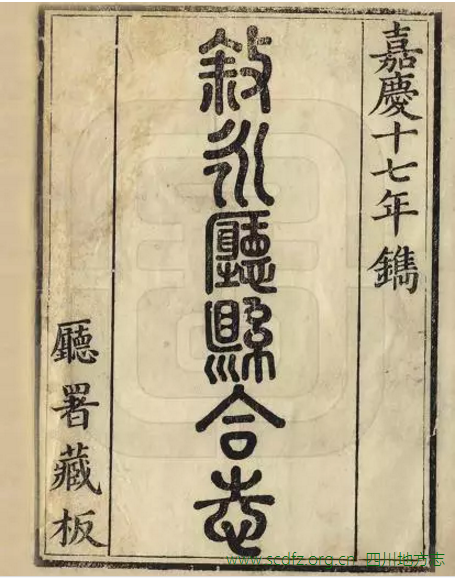 嘉慶十七年鐫
敘永廳縣合志
廳署藏板
www.scdfz.org.cn 四川地方志